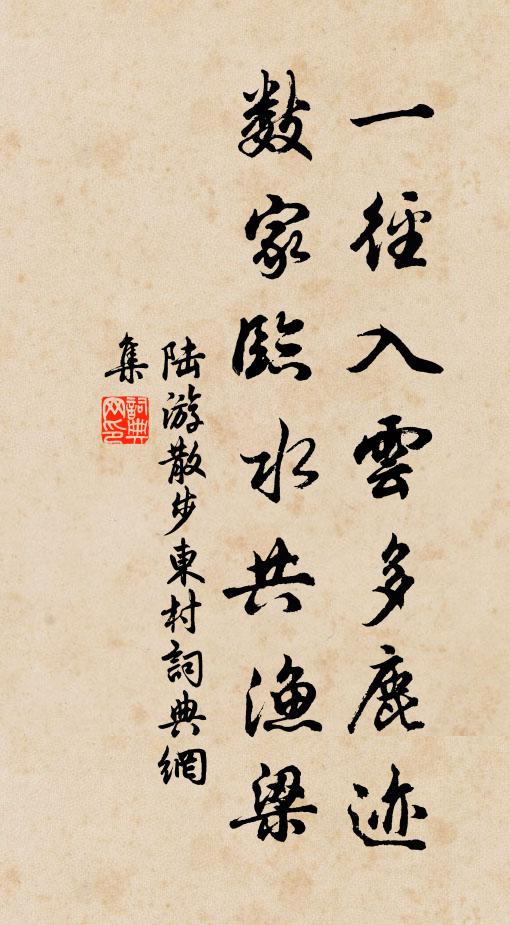 一徑入雲多鹿迹
數家臨水共漁梁
陆游散步東村詞典網
集
詞典網印